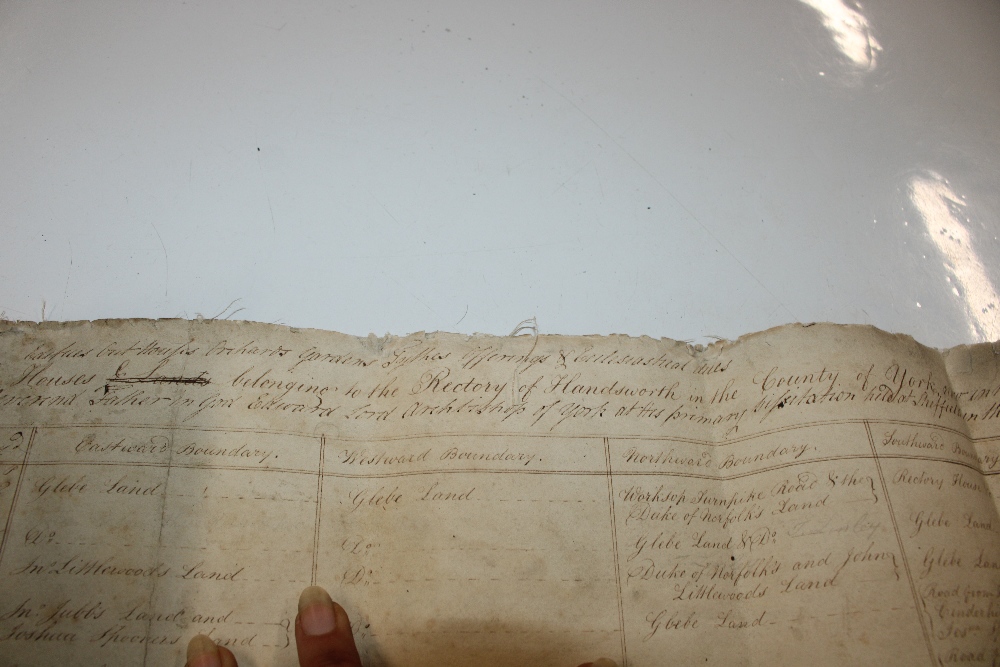 Out Houses Orchards Gardens Tythes Offerings & Ecclesiastical dues
Houses & Lands belonging to the Rectory of Handsworth in the County of York now in
Reverend Father in God Edward Lord Archbishop of York at his primary Visitation held at Sheffield in th
Eastward Boundary.
Westward Boundary.
Northward Boundary.
Southward Boundary
Glebe Land
Glebe Land
Worksop Turnpike Road & the
Duke of Norfolk's Land
Rectory House
Do
Do
Glebe Land & Do
Glebe Land
Jno Littlewoods Land
Do
Duke of Norfolk's and John
Littlewoods Land
Glebe Lan
Jno Jubbs Land and
Joshua Spooners Land
Glebe Land
Road from
Road f